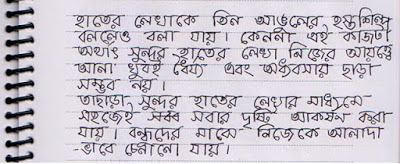 হাতের লেখাকে তিন আঙুলের হস্তশিল্প
বললেও বলা যায়। কেননা এই কাজটা
অর্থাৎ সুন্দর হাতের লেখা নিজের আয়ত্বে
আনা খুবই ধৈর্য্য এবং অধ্যবসায় ছাড়া
সম্ভব নয়।
তাছাড়া সুন্দর হাতের লেখার মাধ্যমে
সহজেই সবার দৃষ্টি আকর্ষন করা
যায়। বন্ধুদের মাঝে নিজেকে আলাদা
-ভাবে চেনানো যায়।